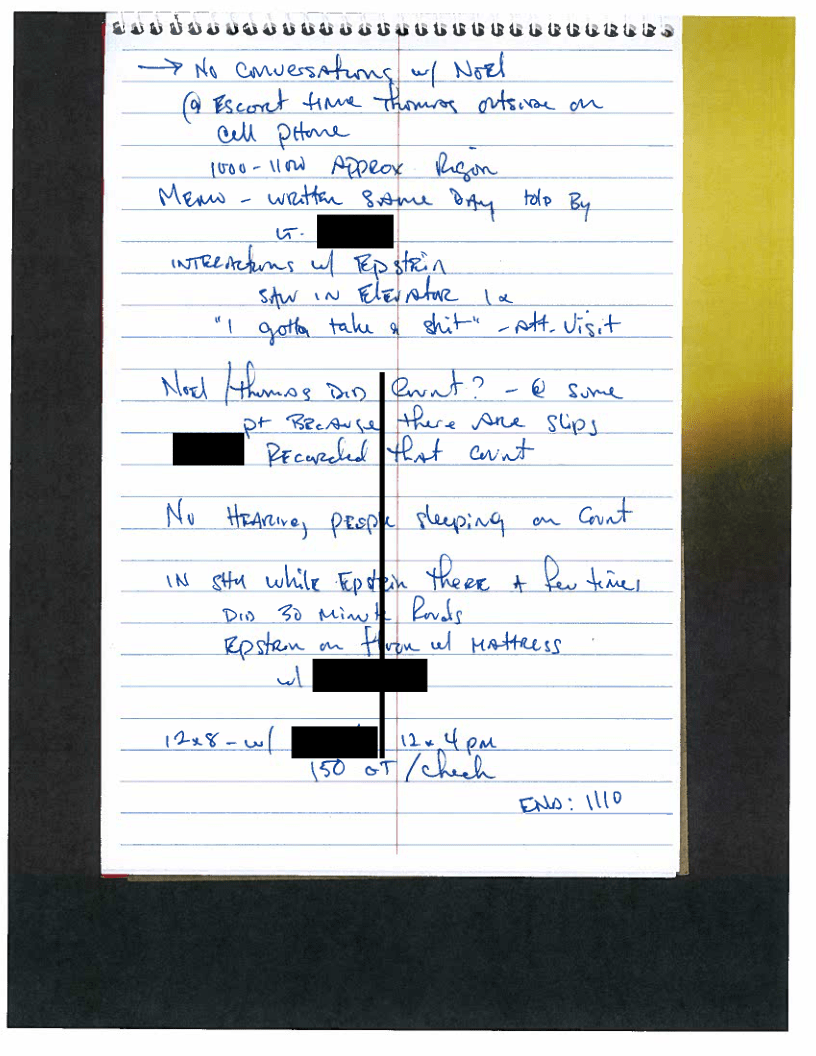 → No Conversations w/ Noel
@ Escort time Thomas outside on
Cell Phone
1000 - 1100 Approx
Memo - written same day told By
LT.
Interactions w/ Epstein
Saw in Elevator 1x
"I gotta take a shit" - Att. Visit
Noel / Thomas DID Count? - @ some
pt Because there are slips
Recorded that count
No Hearing people sleeping on Count
IN SHU while Epstein there A few times
DID 30 Minute
Epstein on floor w/ Mattress
w/
12x8 - w/ 12x4pm
150 OT / check
END: 1110